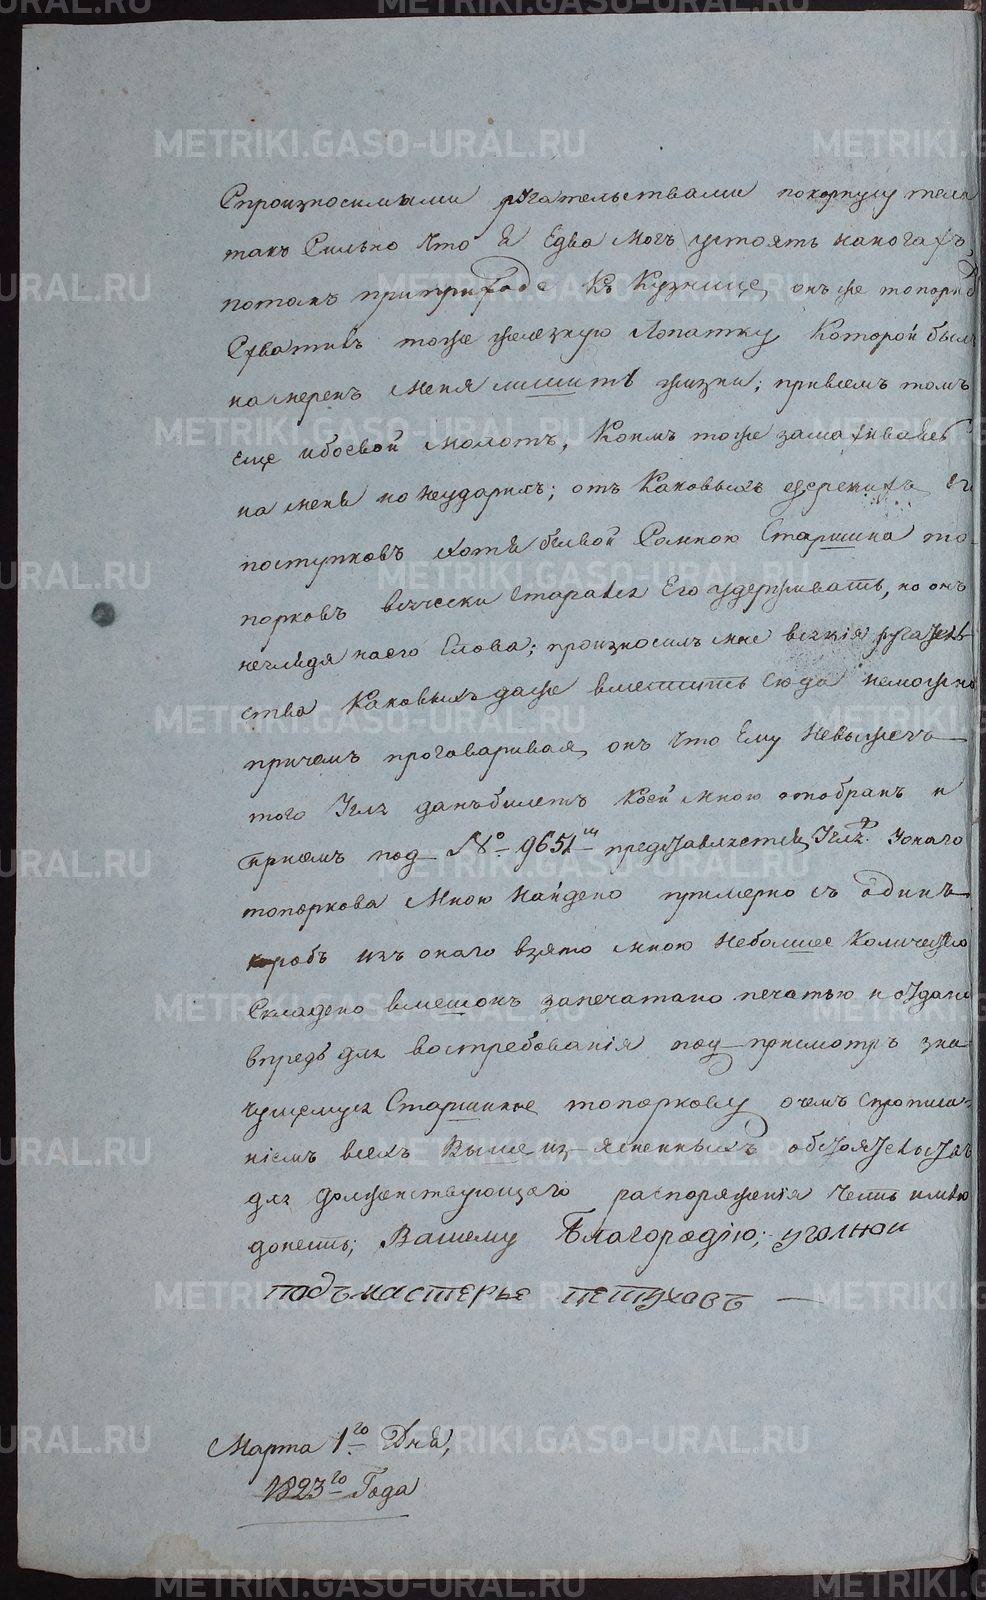 Спроизносимыми ругательствами покорпусу тела
такъ Сильно Что Я Едва Могъ устоять наногахъ,
потомъ приприходе Къ Кузнице, онъ же топорковъ
Схватилъ тоже железную Лопатку Которой былъ
намеренъ Меня лишить жизни; привсемъ томъ
еще ибоевой Молотъ, Коимъ тоже замахивался
на меня но неударилъ; отъ Каковыхъ его
поступковъ хотя бывой Самною Старшина то-
порковъ всячески Старался Его удерживать, но онъ
неглядя наего Слова; произносилъ мне всякія ругатель-
ства Каковыхъ даже вместить Сюда неможно
причемъ проговаривая онъ Что Ему
того данъ билетъ Коей Мною отобранъ и
присемъ под № 9651 представляется У онаго
топоркова Мною Найдено примерно съ одинъ
коробъ изъ онаго взято мною Небольшее Количество
Складено вмешокъ запечатано печатью и отдано
впредь для востребованія под присмотръ зна-
чущемуся Старшине топоркову очемъ Спрописа-
ніемъ всехъ Выше изъясненныхъ обстоятельствъ
для долженствующаго распоряженія Честь имею
донесть; Вашему Благородію; уголной
подъмастерье петуховъ —
Марта 1го Дня,
1823го Года
METRIKI.GASO-URAL.RU